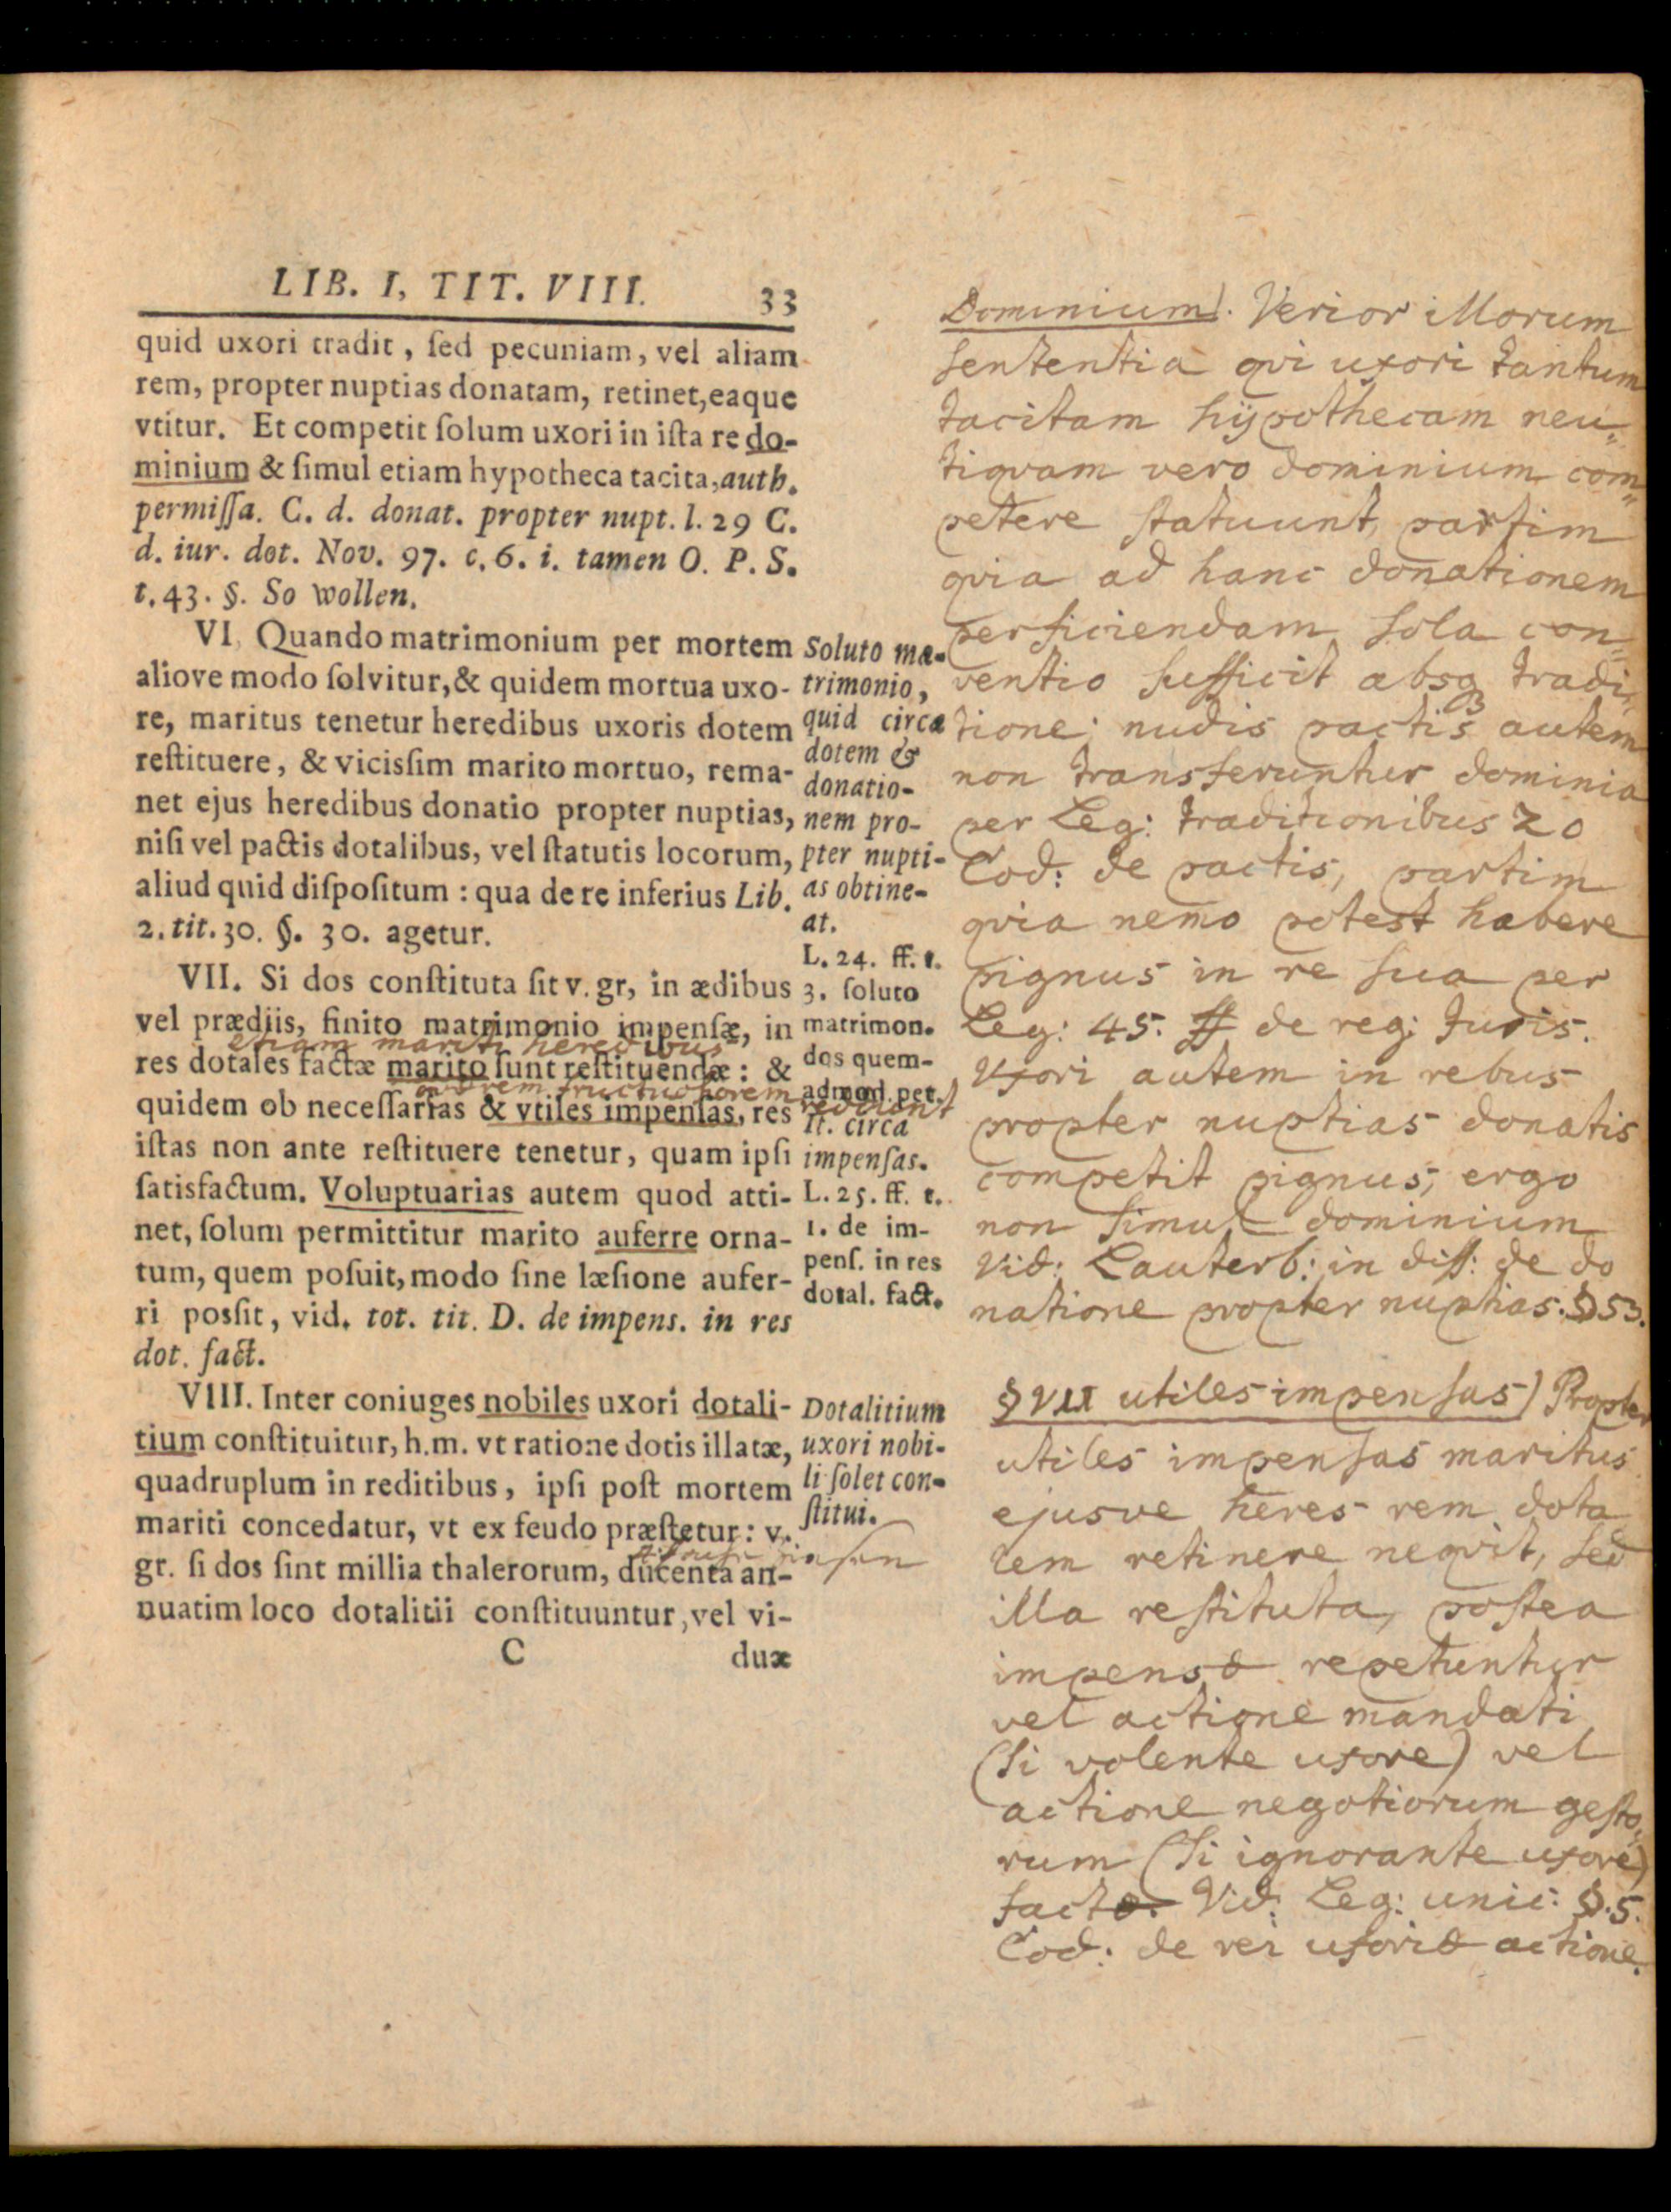 LIB. I, TIT. VIII. 33
quid uxori tradit, ſed pecuniam, vel aliam
rem, propter nuptias donatam, retinet, eaque
vtitur. Et competit ſolum uxori in iſta re do-
minium & ſimul etiam hypotheca tacita, auth.
permiſſa. C. d. donat. propter nupt. l. 29 C.
d. iur. dot. Nov. 97. c. 6. i. tamen O. P. S.
t. 43. §. So wollen.
VI. Quando matrimonium per mortem
aliove modo ſolvitur, & quidem mortua uxo-
re, maritus tenetur heredibus uxoris dotem
reſtituere, & viciſſim marito mortuo, rema-
net ejus heredibus donatio propter nuptias,
niſi vel pactis dotalibus, vel ſtatutis locorum,
aliud quid diſpoſitum : qua de re inferius Lib.
2. tit. 30. §. 30. agetur.
VII. Si dos conſtituta ſit v. gr, in ædibus
vel prædiis, finito matrimonio impenſæ, in
etiam mariti heredibus
res dotales factæ marito ſunt reſtituendæ : &
rem fructuosiorem reddiderint
quidem ob neceſſarias & vtiles impenſas, res
iſtas non ante reſtituere tenetur, quam ipſi
ſatisfactum. Voluptuarias autem quod atti-
net, ſolum permittitur marito auferre orna-
tum, quem poſuit, modo ſine læſione aufer-
ri poſſit, vid. tot. tit. D. de impens. in res
dot. fact.
VIII. Inter coniuges nobiles uxori dotali-
tium conſtituitur, h.m. vt ratione dotis illatæ,
quadruplum in reditibus, ipſi poſt mortem
mariti concedatur, vt ex feudo præſtetur : v.
gr. ſi dos ſint millia thalerorum, ducenta an-
nuatim loco dotalitii conſtituuntur, vel vi-
C duæ
Soluto ma-
trimonio,
quid circa
dotem &
donatio-
nem pro-
pter nupti-
as obtine-
at.
L. 24. ff. t.
3. ſoluto
matrimon.
dos quem-
admod. pet.
It. circa
impenſas.
L. 25. ff. t.
1. de im-
penſ. in res
dotal. fact.
Dotalitium
uxori nobi-
li ſolet con-
ſtitui.
Dominium). Verior illorum
ſententia qvi uxori tantum
tacitam hÿpothecam neu=
tiqvam vero dominium com=
petere ſtatuunt, partim
qvia ad hanc donationem
perficiendam ſola con=
ventio ſufficit absq tradi=
tione; nudis pactis autem
non transferuntur dominia
per Leg: traditionibus 20
Cod: de pactis, partim
qvia nemo potest habere
pignus in re ſua per
Leg: 45. ff de reg: Juris.
Uxori autem in rebus
propter nuptias donatis
competit pignus, ergo
non ſimul dominium
Vid: Lauterb: in diſſ: de do
natione propter nuptias. § 53.
§ VII utiles impenſas) Propter
utiles impenſas maritus
ejusve heres rem dota
lem retinere neqvit, ſed
illa reſtituta, poſtea
impensæ repetuntur
vel actione mandati
(ſi volente uxore) vel
actione negotiorum geſto=
rum (ſi ignorante uxore)
factæ. Vid: Leg: unic: §. 5.
Cod: de rei uxoriæ actione.